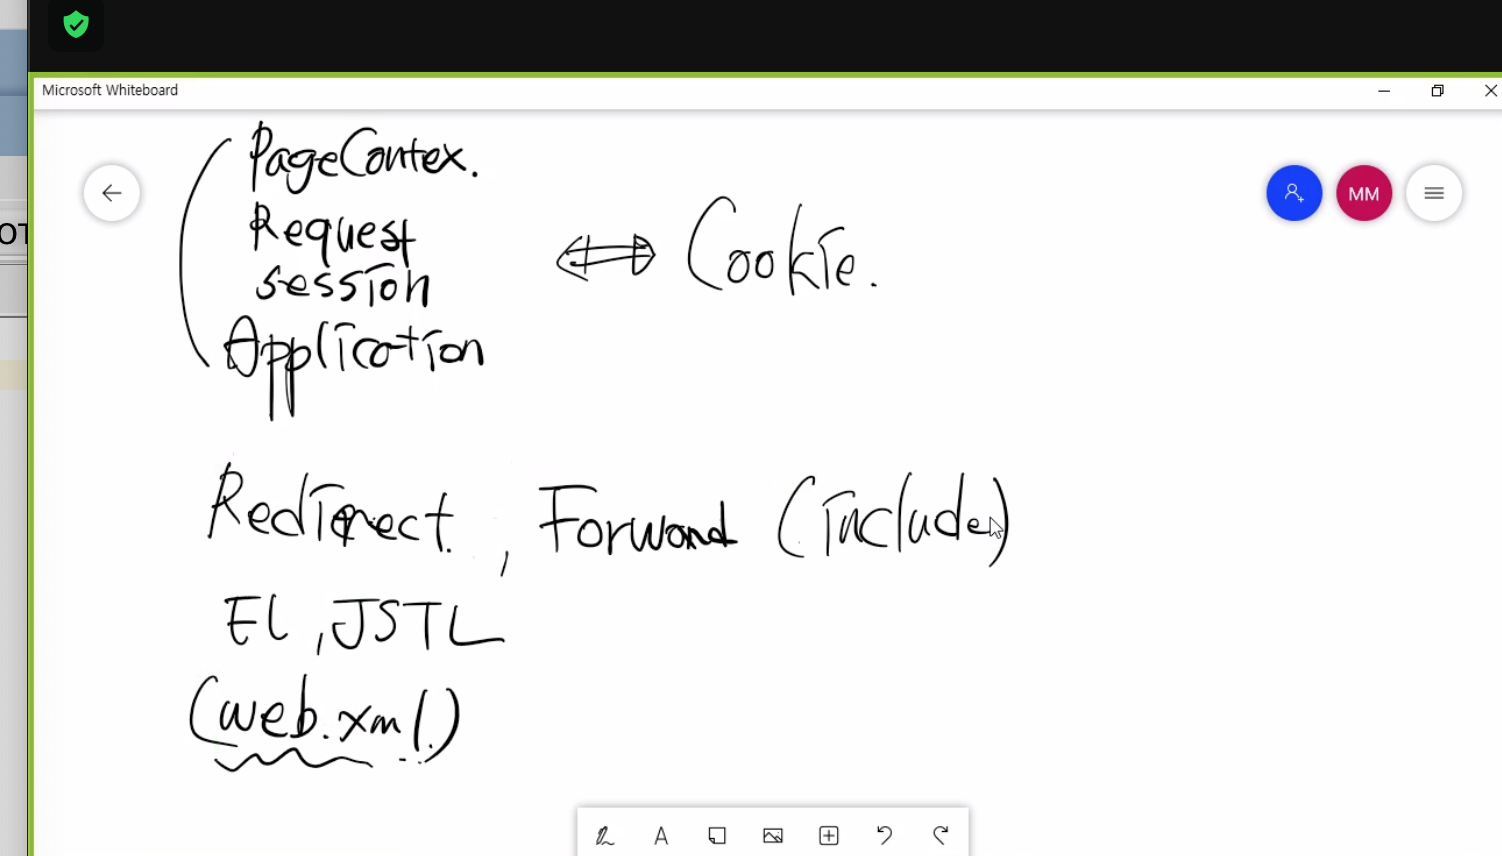 Microsoft Whiteboard
PageContex.
Request
session
Application
⇔ Cookie.
MM
OT
Redirect, Forward (include)
EL, JSTL
(web.xml)
A